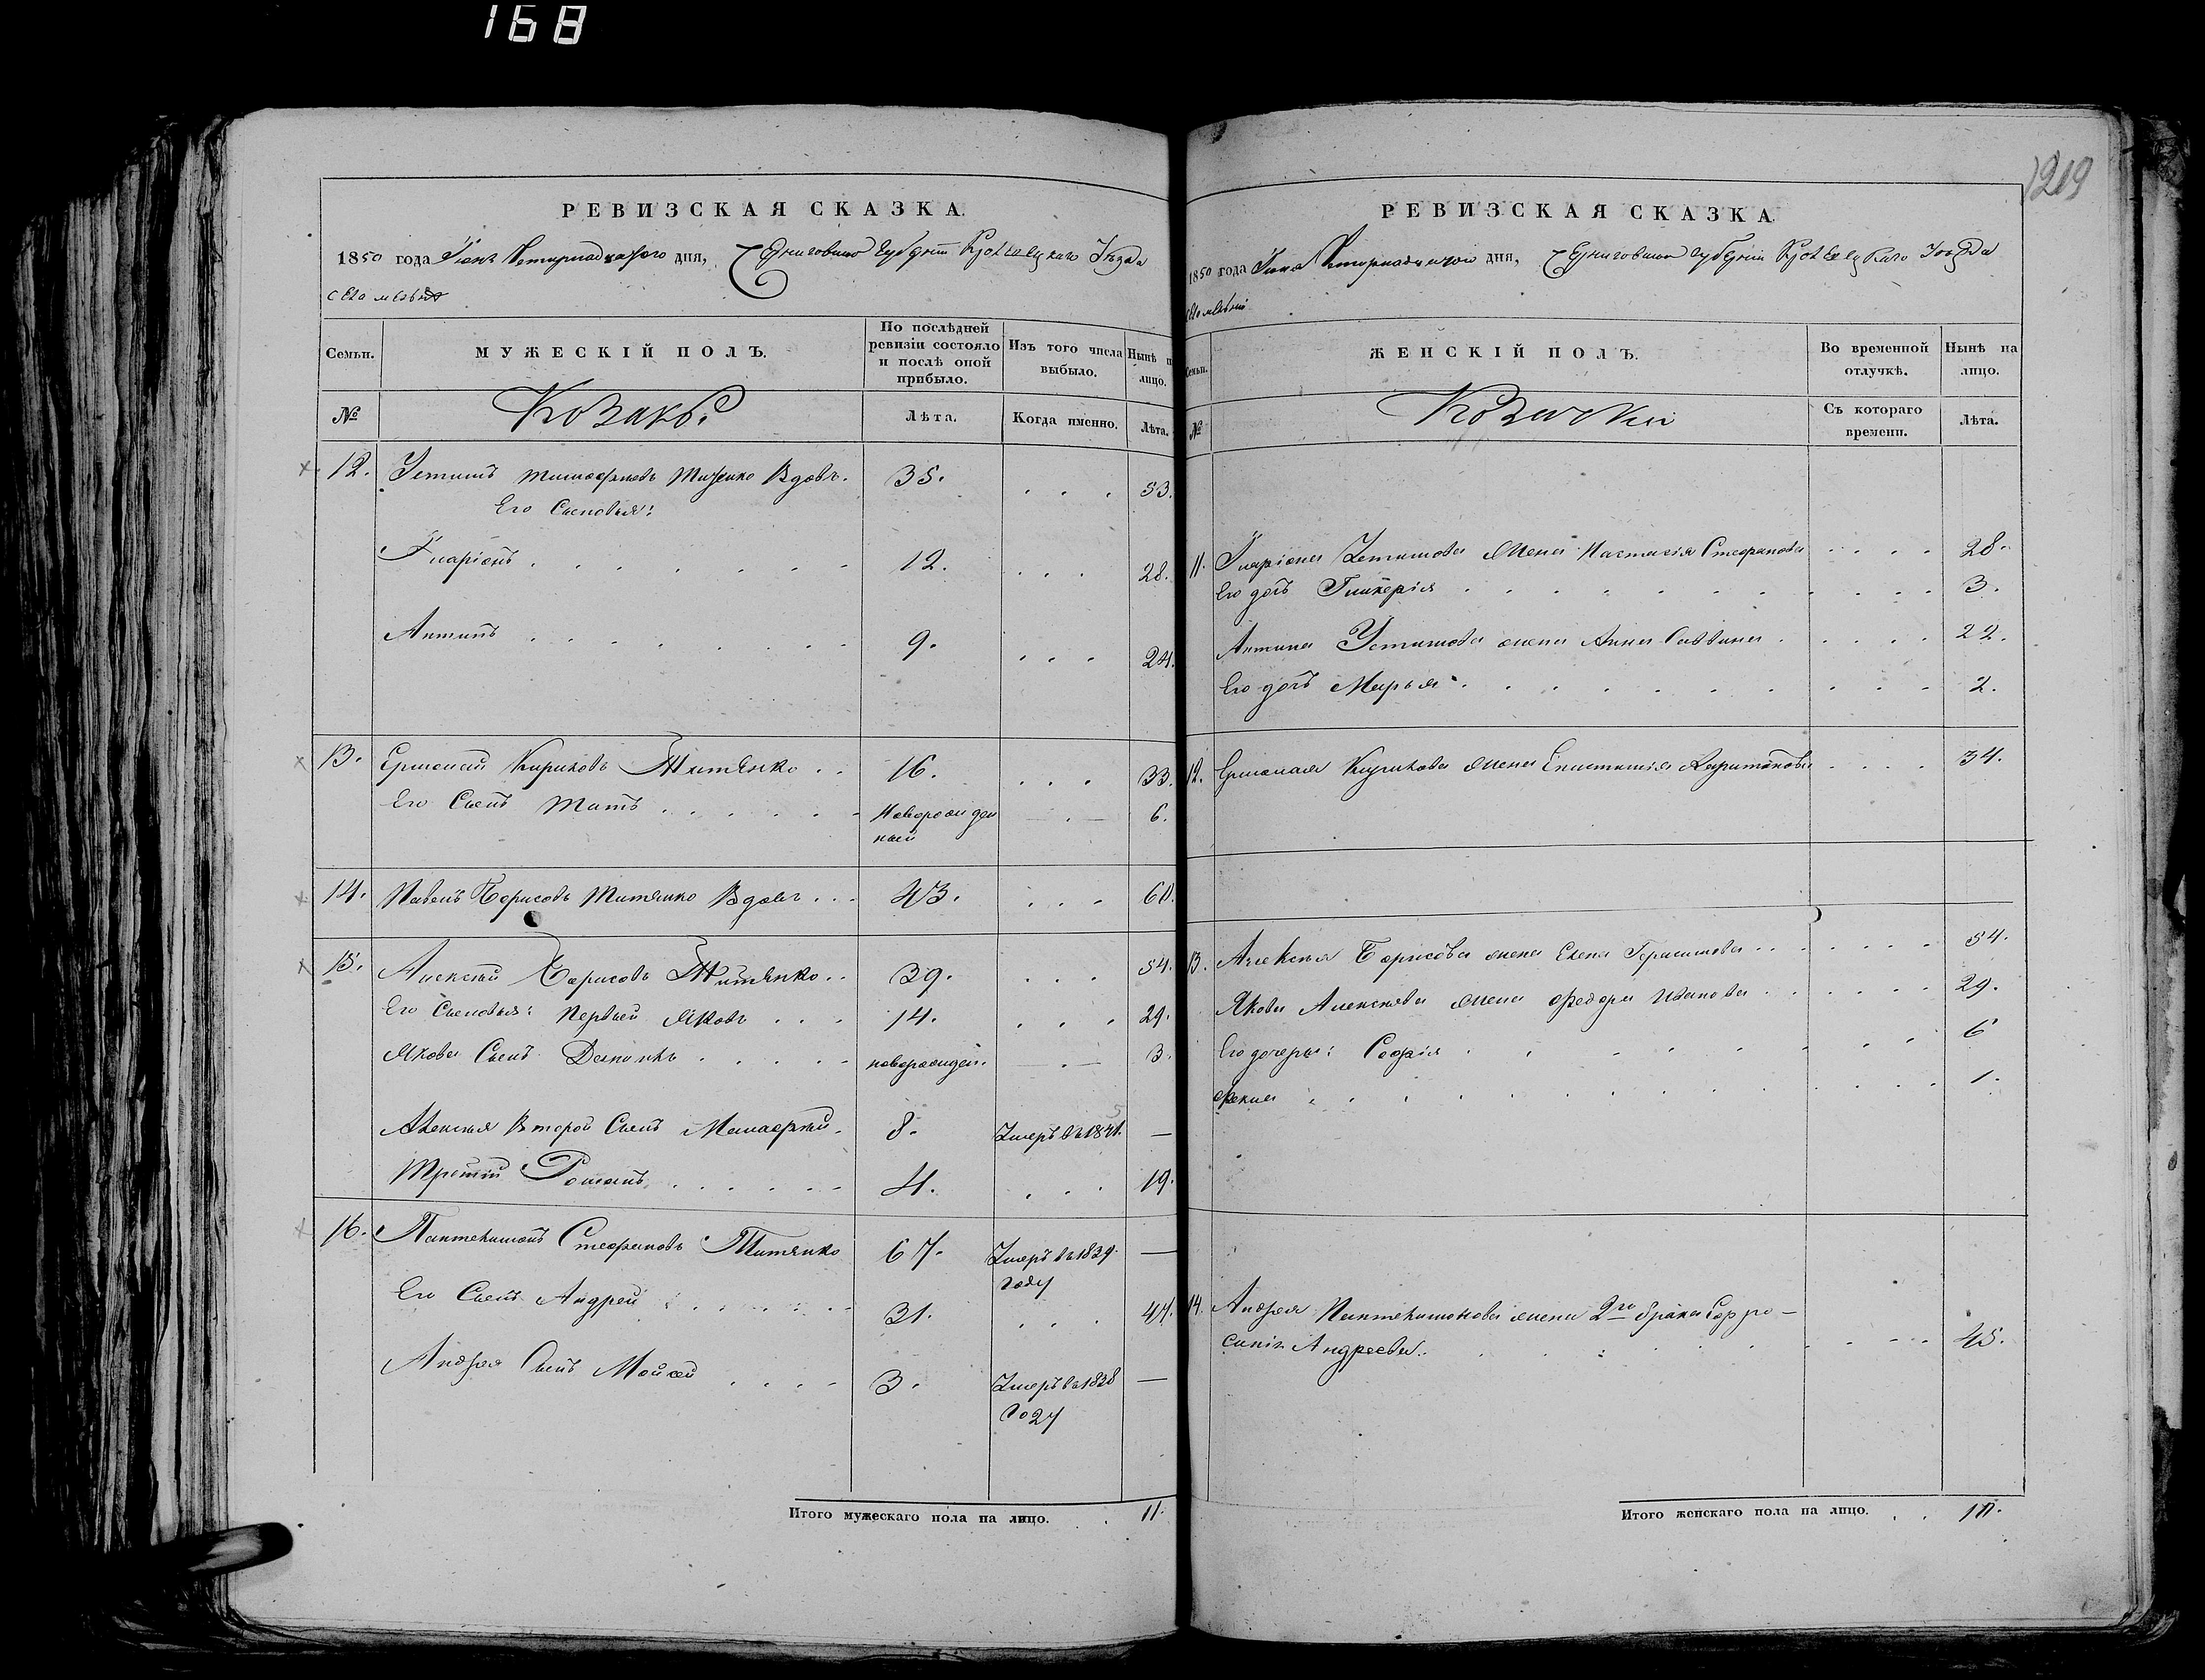 168
1219
РЕВИЗСКАЯ СКАЗКА.
1850 года Іюня Четырнадцатого дня, Черниговской губерніи Кролевецкаго Уѣзда
Семьи.
МУЖЕСКІЙ ПОЛЪ.
По послѣдней ревизіи состояло и послѣ оной прибыло.
Изъ того числа выбыло.
Нынѣ на лицо.
№
Козаки.
Лѣта.
Когда именно.
Лѣта.
12. Устимъ Тимофѣевъ Титенко Вдовъ. 35. 53.
Его Сыновья:
Иларіонъ 12. 28.
Антипъ 9. 24.
13. Ермолай Кириковъ Титенко 16. 33.
Его Сынъ Титъ Новорожденный 6.
14. Павелъ Борисовъ Титенко Вдовъ 43. 60.
15. Алексѣй Борисовъ Титенко 39. 54.
Его Сыновья: Первый Яковъ 14. 29.
Якова Сынъ новорожден. 3.
Алексѣя Второй Сынъ 8. Умеръ въ 1841. —
Третій Романъ 4. 19.
16. Пантелимонъ Стефановъ Титенко 67. Умеръ въ 1839 году —
Его Сынъ Андрей 31. 47.
Андрея Сынъ Мойсей 3. Умеръ въ 1838 году —
Итого мужескаго пола на лицо. 11.
РЕВИЗСКАЯ СКАЗКА.
1850 года Іюня Четырнадцатого дня, Черниговской губерніи Кролевецкаго Уѣзда
Семьи.
ЖЕНСКІЙ ПОЛЪ.
Во временной отлучкѣ.
Нынѣ на лицо.
№
Козачки
Съ котораго времени.
Лѣта.
11. Иларіона Устимова жена Настасія Стефанова 28.
Его дочь Гликерія 3.
Антипа Устимова жена Анна Саввина 22.
Его дочь Марья 2.
12. Ермолая Кирикова жена Епистимія Харитонова 34.
13. Алексѣя Борисова жена Елена Герасимова 54.
Якова Алексѣева жена Федора Иванова 29.
Его дочери: Софія 6
Фекла 1.
14. Андрея Пантелимонова жена 2го брака Евфросинія Андреева 45.
Итого женскаго пола на лицо. 10.